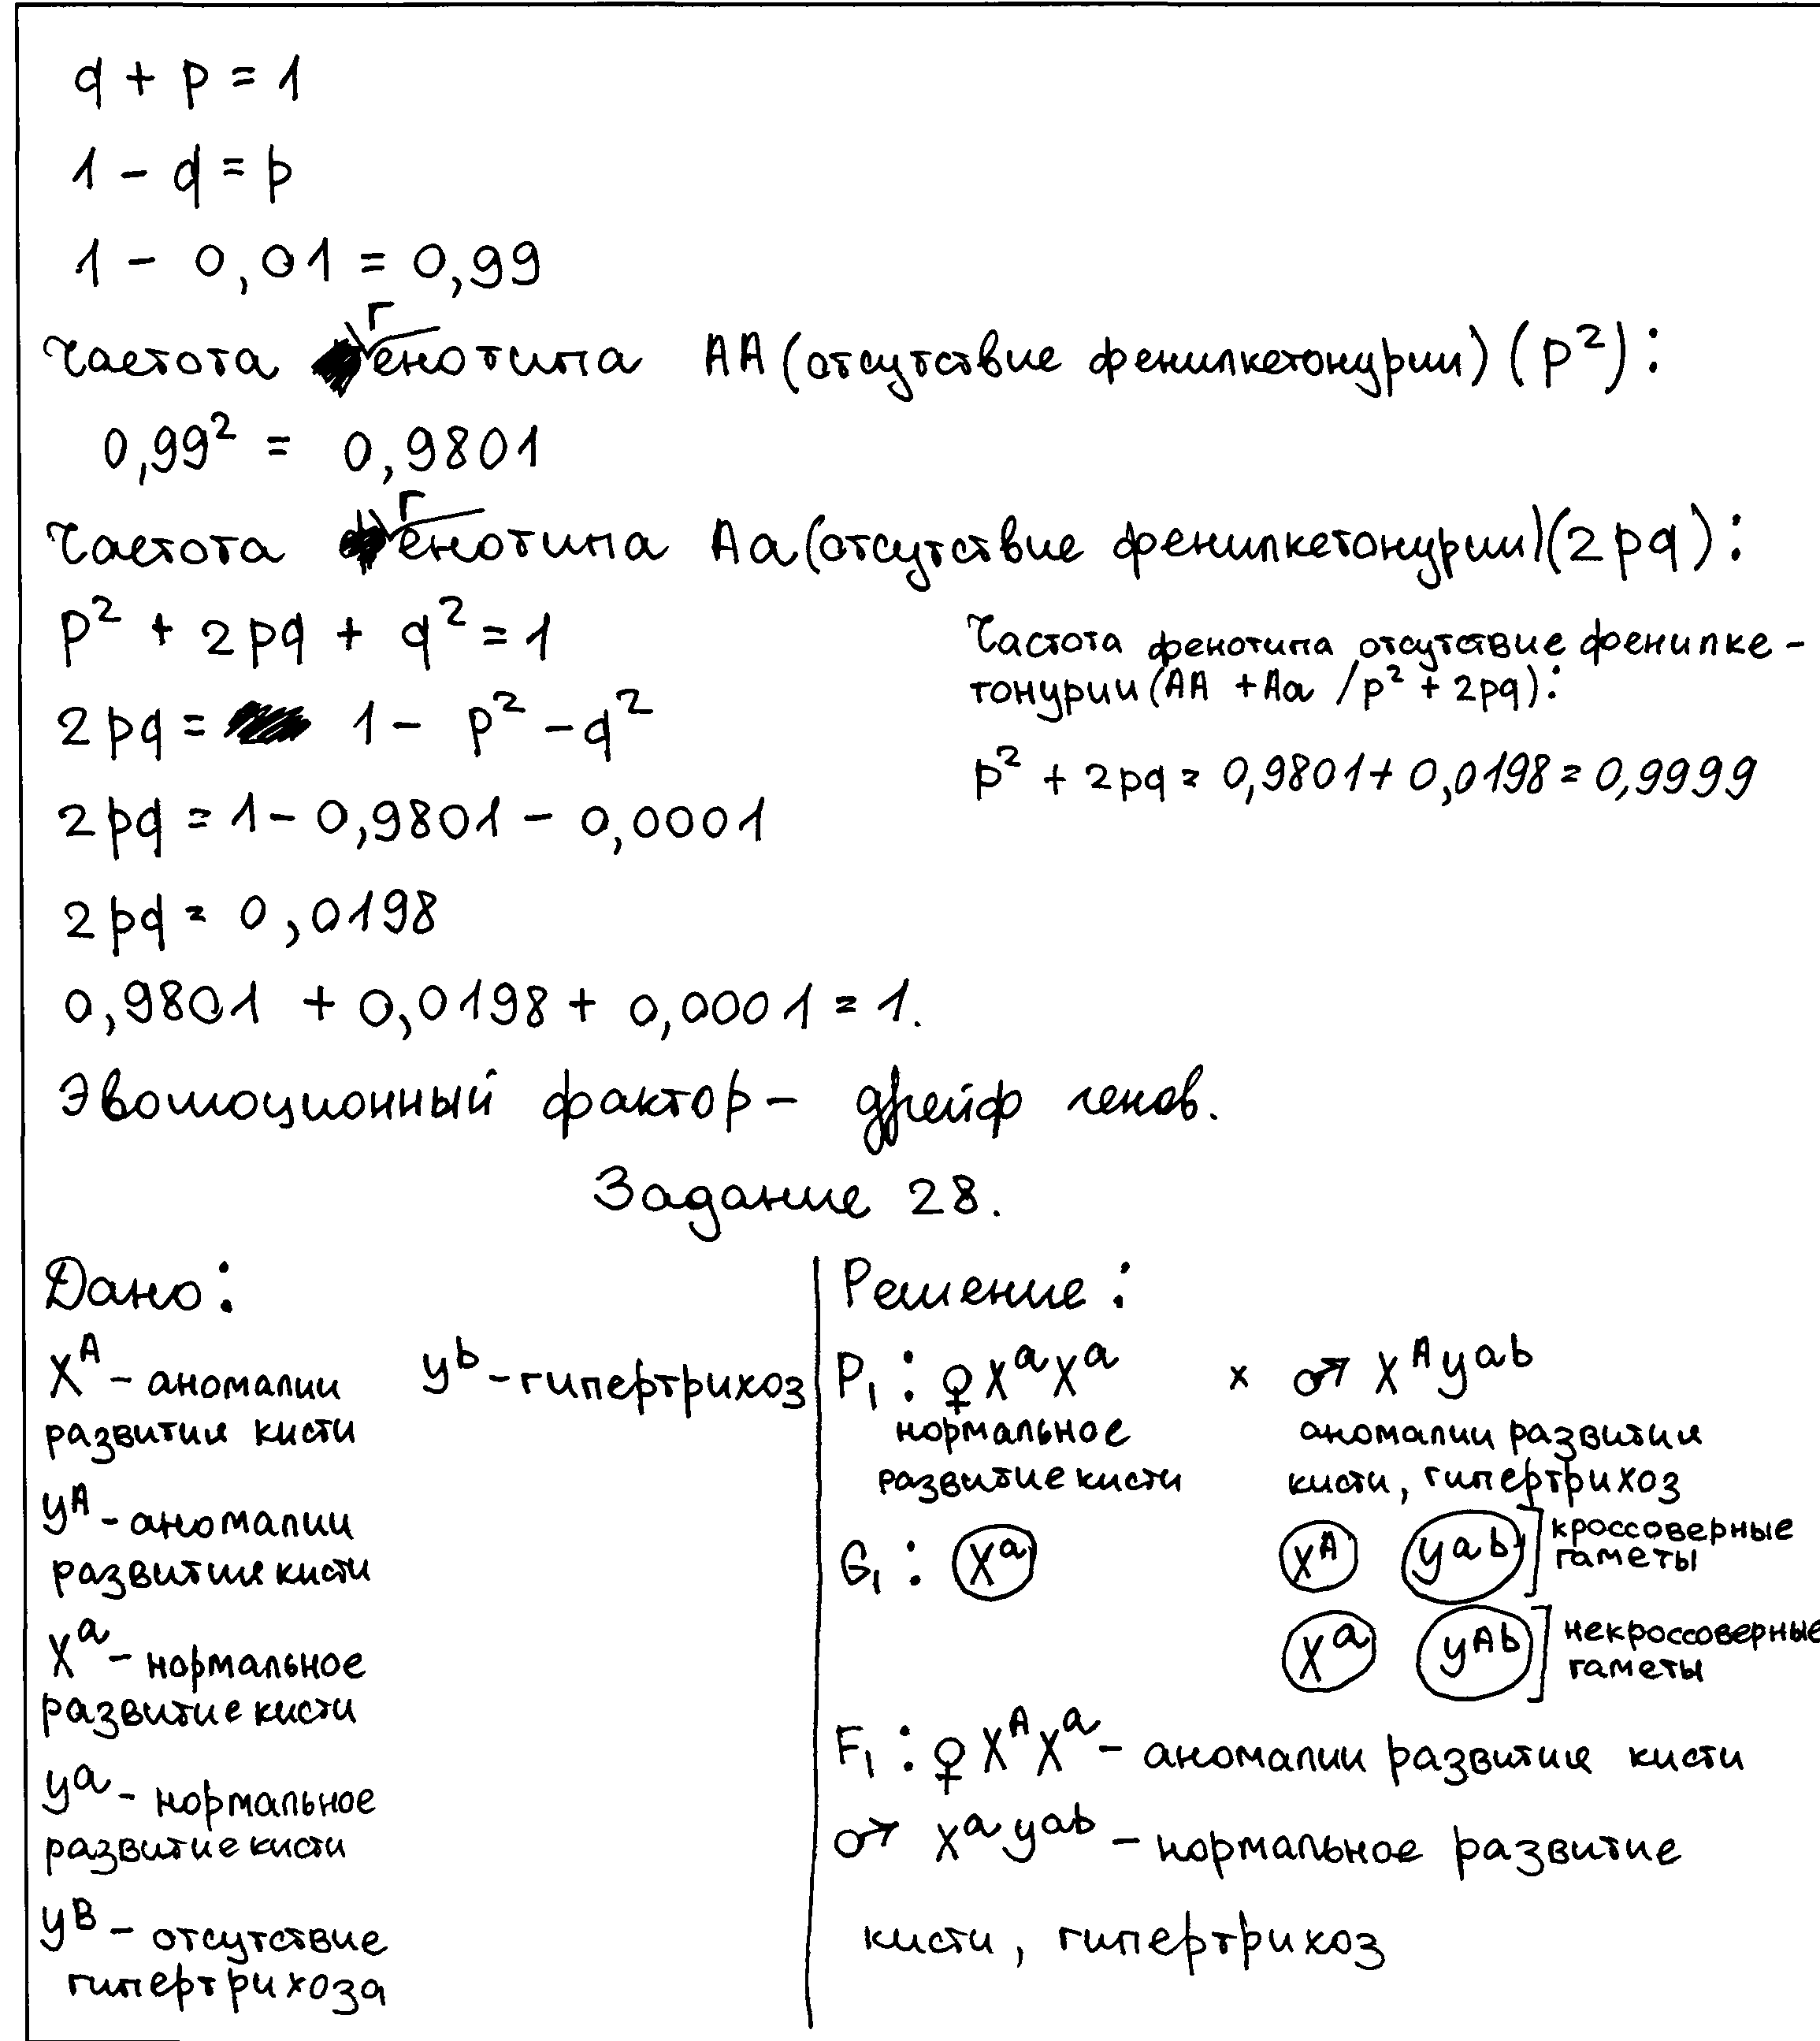 q + p = 1
1 - q = p
1 - 0,01 = 0,99
Частота генотипа AA (отсутствие фенилкетонурии) (p²):
0,99² = 0,9801
Частота генотипа Aa (отсутствие фенилкетонурии)(2pq):
p² + 2pq + q² = 1
2pq = 1 - p² - q²
2pq = 1 - 0,9801 - 0,0001
2pq = 0,0198
0,9801 + 0,0198 + 0,0001 = 1.
Частота фенотипа отсутствие фенилке-
тонурии (AA + Aa / p² + 2pq):
p² + 2pq = 0,9801 + 0,0198 = 0,9999
Эволюционный фактор - дрейф генов.
Задание 28.
Дано:
X^A - аномалии
развития кисти
y^b - гипертрихоз
y^A - аномалии
развития кисти
X^a - нормальное
развитие кисти
y^a - нормальное
развитие кисти
y^B - отсутствие
гипертрихоза
Решение:
P₁: ♀ X^a X^a x ♂ X^A y^ab
нормальное
развитие кисти
аномалии развития
кисти, гипертрихоз
G₁: X^a
X^A y^ab ] кроссоверные
гаметы
X^a y^Ab ] некроссоверные
гаметы
F₁: ♀ X^A X^a - аномалии развития кисти
♂ X^a y^ab - нормальное развитие
кисти, гипертрихоз